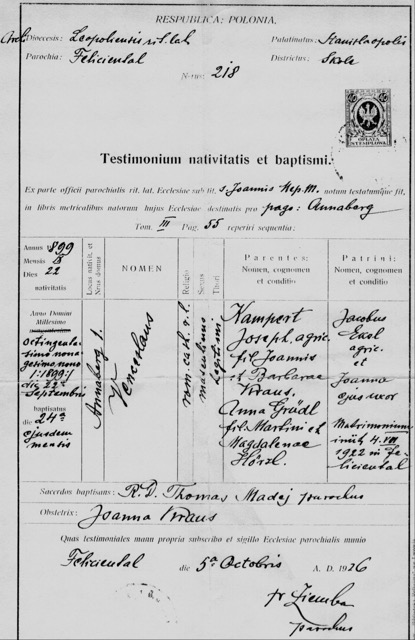 RESPUBLICA: POLONIA.
Arch Dioecesis: Leopoliensis rit. lat. Palatinatus: Stanislaopolis
Parochia: Feliciental Districtus: Skole
N-rus: 218
OPŁATA
STEMPLOWA
Testimonium nativitatis et baptismi.
Ex parte officii parochialis rit. lat. Ecclesiae sub tit. s. Joannis Nep. M. notum testatumque fit,
in libris metricalibus natorum hujus Ecclesiae destinatis pro pago: Annaberg
Tom. III Pag. 55 reperiri sequentia:
Annus 1899
Mensis IX
Dies 22
nativitatis
Locus nativit. et
Nrus domus
NOMEN
Religio
Sexus
Thori
Parentes:
Nomen, cognomen
et conditio
Patrini:
Nomen, cognomen
et conditio
Anno Domini
Millesimo
octingente-
simo nona-
gesimo nono
/:1899:/
die 22a
Septembris
baptisatus
die 24a
ejusdem
mentis
Annaberg 1.
Venceslaus
rom. cath. r. l.
masculinus
legitimi
Kampert
Joseph, agric.
fil. Joannis
et Barbarae
Kraus.
Anna Grädl
fil. Martini et
Magdalenae
Hörzl.
Jacobus
Exol
agric.
et
Joanna
ejus uxor
Matrimonium
iniit 4. VII
1922 in Fe-
liciental
Sacerdos baptisans: R. D. Thomas Madej parochus
Obstetrix: Joanna Kraus
Quas testimoniales manu propria subscribo et sigillo Ecclesiae parochialis munio
Feliciental die 5a Octobris A. D. 1926
Ziemba
parochus